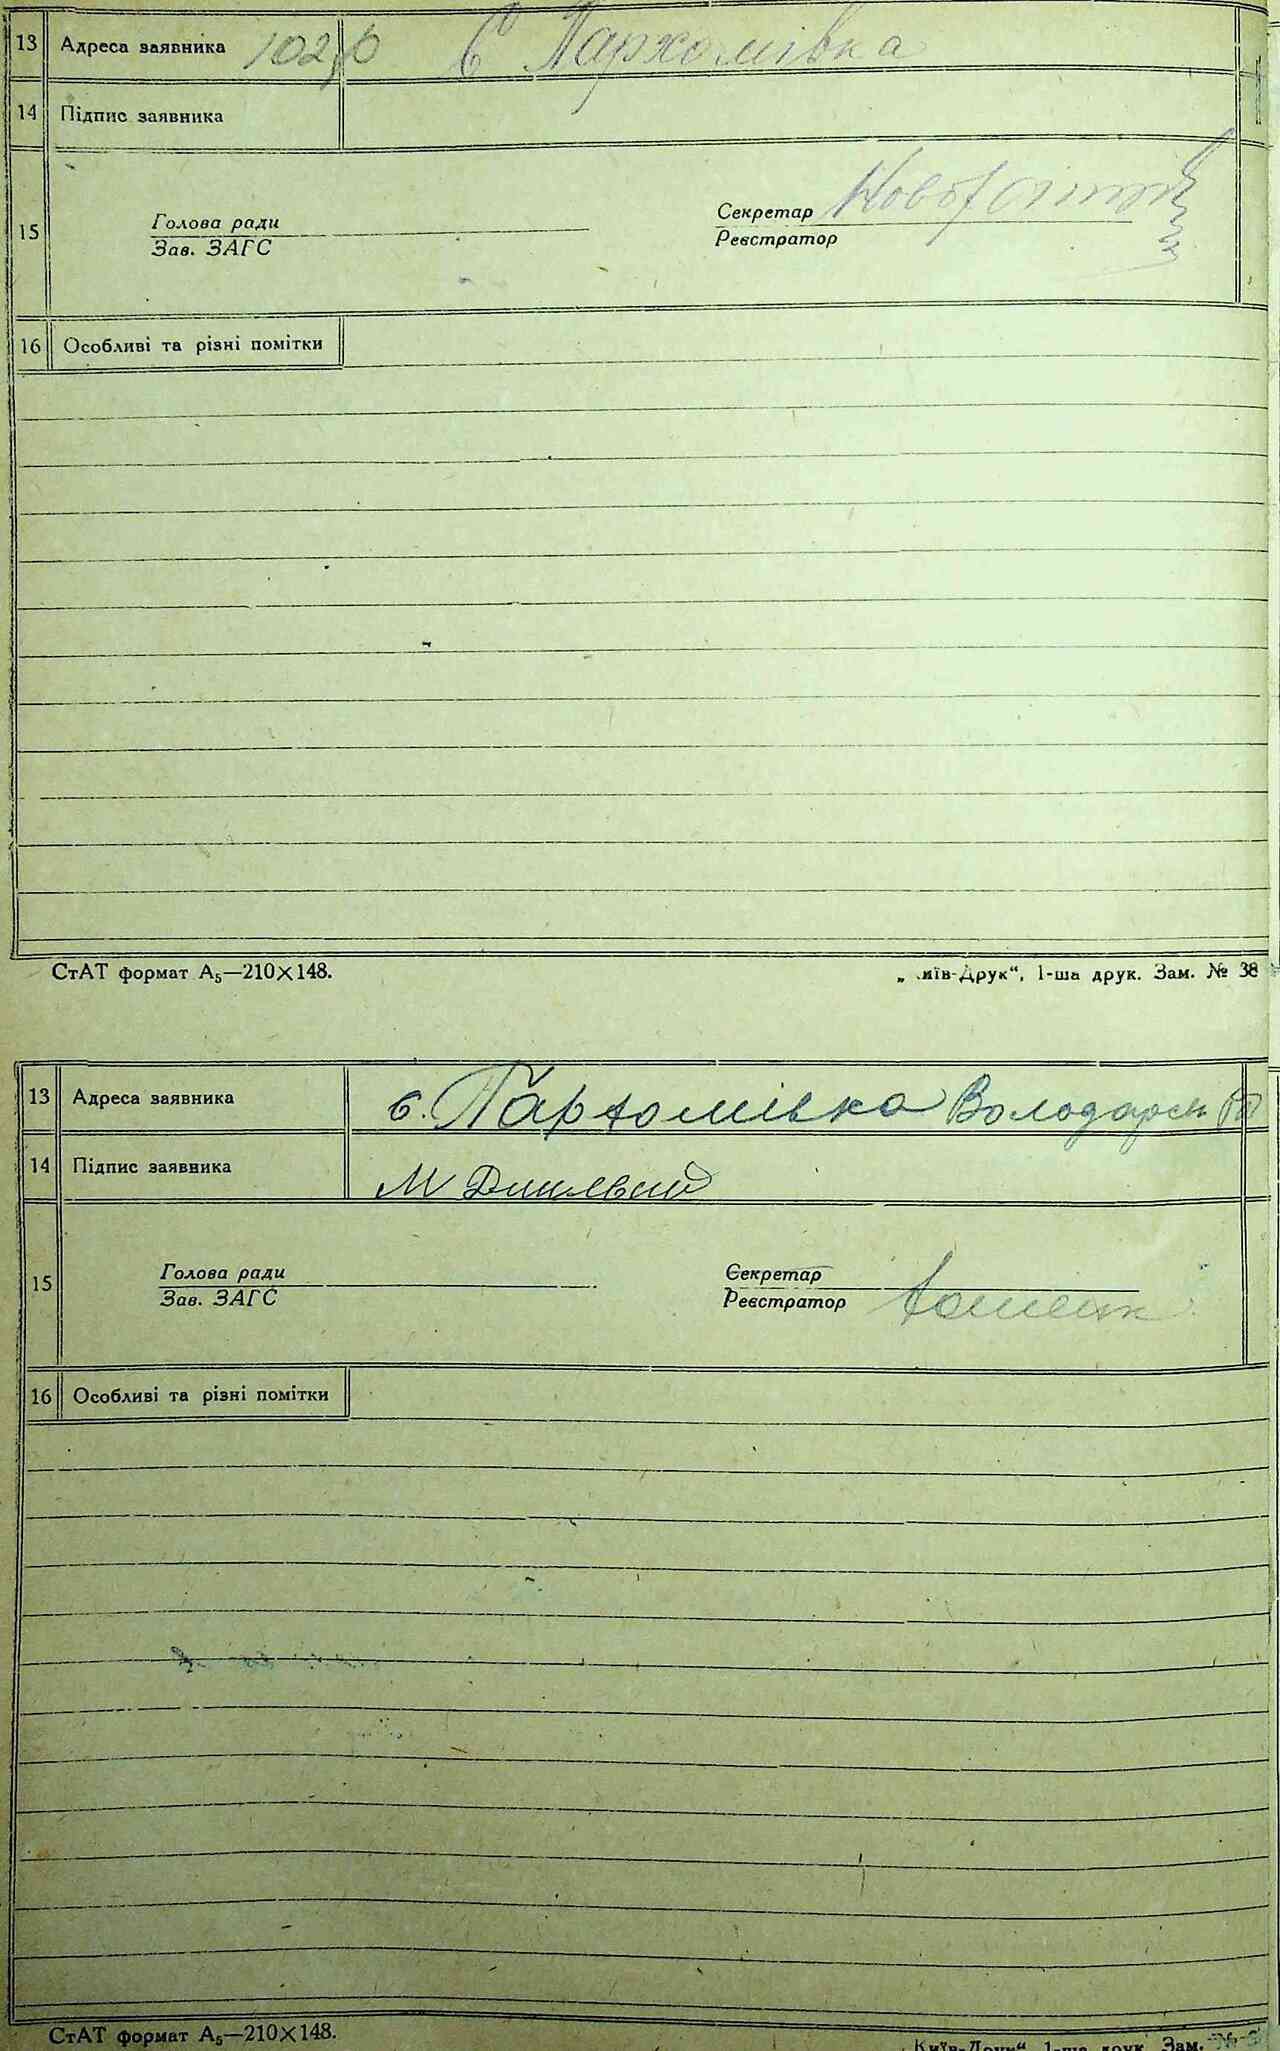 13 Адреса заявника С Пархомівка
14 Підпис заявника
15 Голова ради Секретар
Зав. ЗАГС Реєстратор
16 Особливі та різні помітки
СтАТ формат А₅—210×148. „ иїв-Друк“, 1-ша друк. Зам. № 38
13 Адреса заявника с. Пархомівка Володарськ
14 Підпис заявника М
15 Голова ради Секретар
Зав. ЗАГС Реєстратор
16 Особливі та різні помітки
СтАТ формат А₅—210×148. Київ-Друк“ 1-ша друк. Зам.